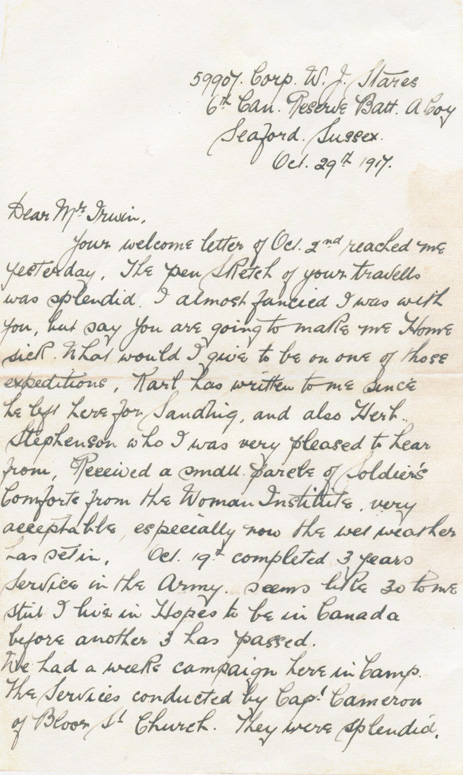 59907. Corp. W. J. Stares
6th Can. Reserve Batt. A Coy
Seaford. Sussex.
Oct. 29th 1917.
Dear Mrs Irwin,
Your welcome letter of Oct. 2nd reached me
yesterday. The pen sketch of your travells
was splendid. I almost fancied I was with
you, but say you are going to make me Home
sick. What would I give to be on one of those
expeditions. Karl has written to me since
he left here for Sandling, and also Herb.
Stephenson who I was very pleased to hear
from. Received a small parcle of Soldier's
Comforts from the Woman Institute. very
acceptable, especially now the wet weather
has set in. Oct. 19th completed 3 years
Service in the Army. seems like 30 to me
still I live in Hopes to be in Canada
before another 3 has passed.
We had a weeks campaign here in Camp.
The Services conducted by Capt Cameron
of Bloor St Church. They were splendid.